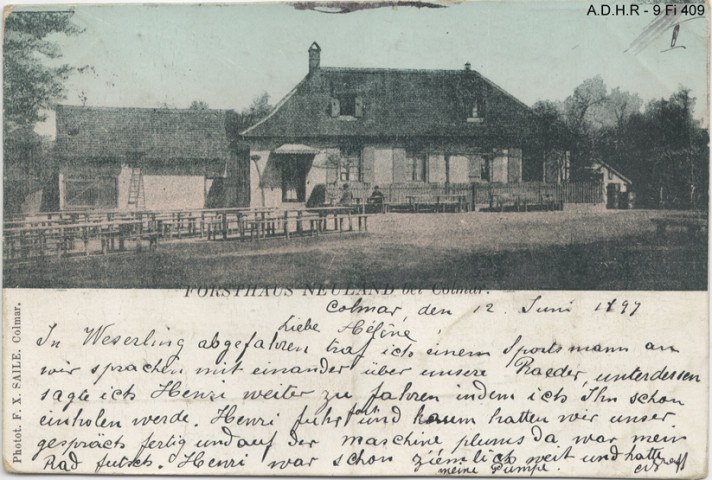 A.D.H.R - 9 Fi 409
FORSTHAUS NEULAND bei Colmar.
Colmar, den 12. Juni 1897
Liebe Hélène!
In Weserling abgefahren traf ich einem Sportsmann an
wir sprachen mit einander über unsere Raeder, unterdessen
sagte ich Henri weiter zu fahren indem ich Ihn schon
einholen werde. Henri fuhr fort und kaum hatten wir unser
gespräch fertig und auf der maschine plums da war mein
Rad futsch. Henri war schon ziemlich weit und hatte
meine Pumpe.
Photot. F. X. SAILE, Colmar.